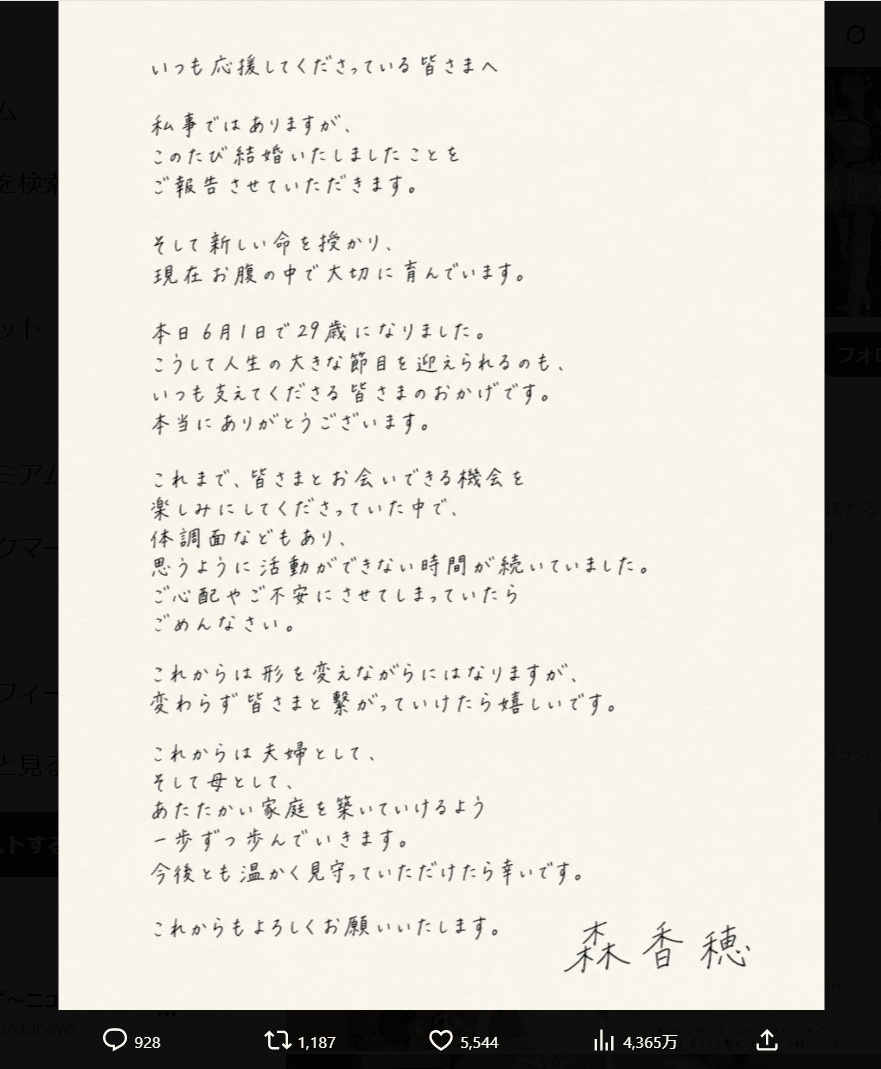 いつも応援してくださっている皆さまへ
私事ではありますが、
このたび結婚いたしましたことを
ご報告させていただきます。
そして新しい命を授かり、
現在お腹の中で大切に育んでいます。
本日6月1日で29歳になりました。
こうして人生の大きな節目を迎えられるのも、
いつも支えてくださる皆さまのおかげです。
本当にありがとうございます。
これまで、皆さまとお会いできる機会を
楽しみにしてくださっていた中で、
体調面などもあり、
思うように活動ができない時間が続いていました。
ご心配やご不安にさせてしまっていたら
ごめんなさい。
これからは形を変えながらにはなりますが、
変わらず皆さまと繋がっていけたら嬉しいです。
これからは夫婦として、
そして母として、
あたたかい家庭を築いていけるよう
一歩ずつ歩んでいきます。
今後とも温かく見守っていただけたら幸いです。
これからもよろしくお願いいたします。
森香穂
928 1,187 5,544 4,365万